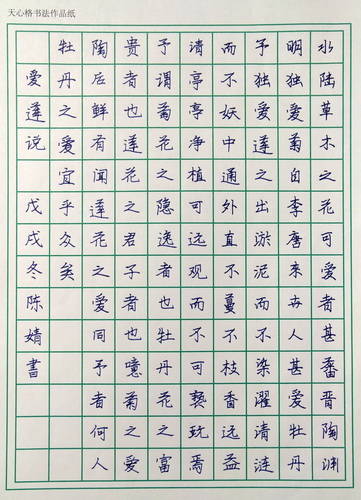 天心格书法作品纸
水陆草木之花可爱者甚蕃晋陶渊
明独爱菊自李唐来世人甚爱牡丹
予独爱莲之出淤泥而不染濯清涟
而不妖中通外直不蔓不枝香远益
清亭亭净植可远观而不可亵玩焉
予谓菊花之隐逸者也牡丹花之富
贵者也莲花之君子者也噫菊之爱
陶后鲜有闻莲花之爱同予者何人
牡丹之爱宜乎众矣
爱莲说 戊戌冬陈婧書